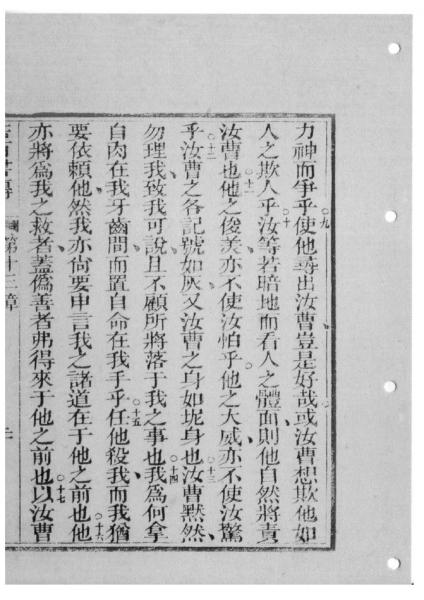 力神而爭乎○九使他尋出汝曹豈是好哉或汝曹想欺他如
人之欺人乎○十汝等若暗地而看人之體面則他自然將責
汝曹也○十一他之俊美亦不使汝怕乎他之大威亦不使汝驚
乎○十二汝曹之各記號如灰又汝曹之身如坭身也○十三汝曹黙然
勿理我致我可說且不顧所將落于我之事也○十四我爲何拿
自肉在我牙齒間而置自命在我手乎○十五任他殺我而我猶
要依賴他然我亦尙要申言我之諸道在于他之前也○十六他
亦將爲我之救者蓋僞善者弗得來于他之前也○十七以汝曹
第十三章